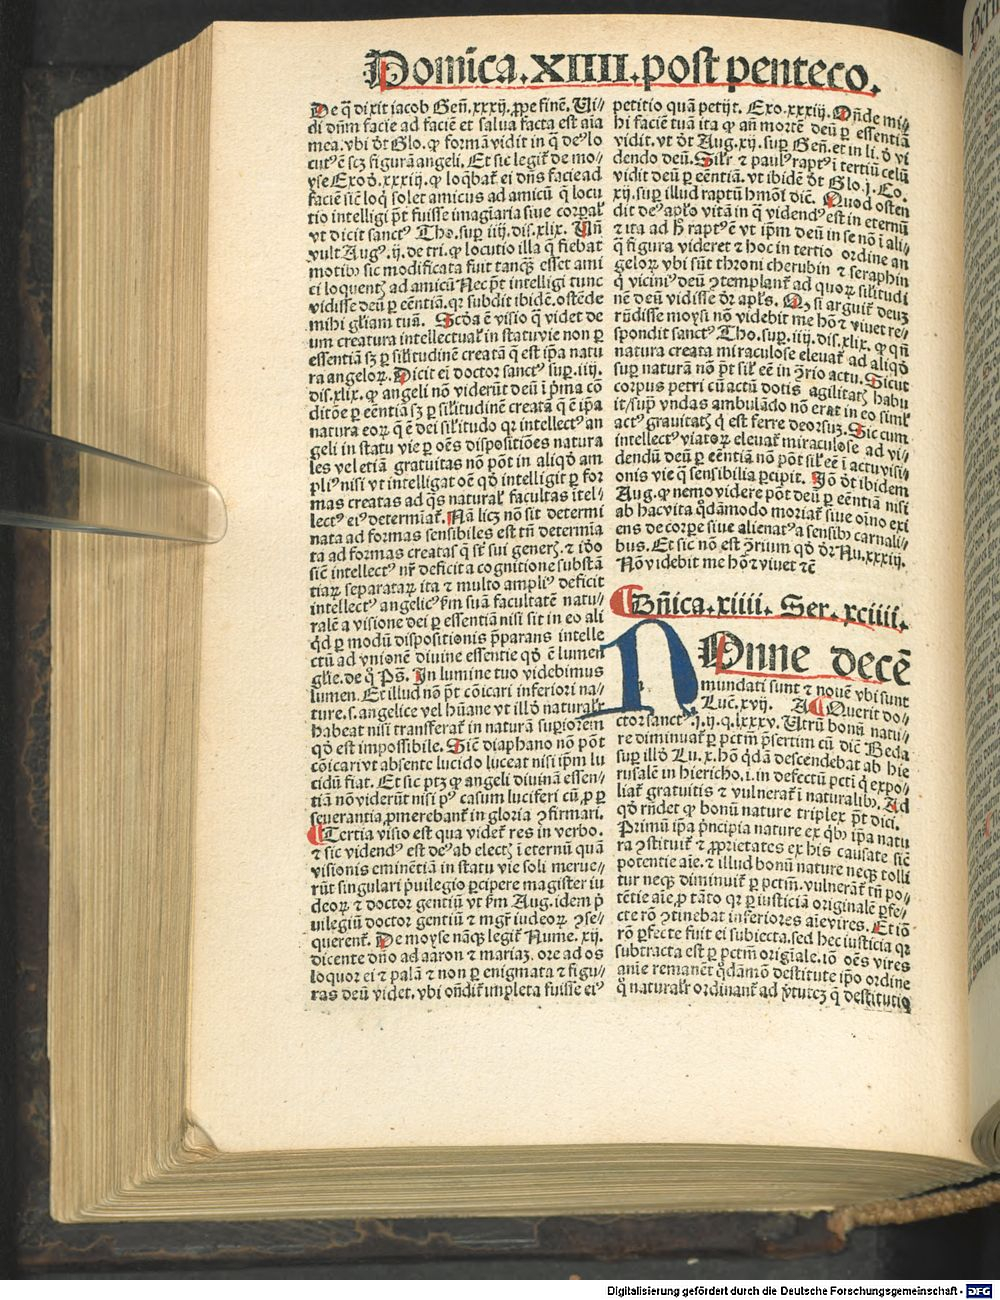 Domīca.XIIII.post penteco.
De q̄ dixit iacob Geñ.xxxij.ꝓpe finē. Ui/
di dñm facie ad faciē et salua facta est aīa
mea. vbi dt̄ Glo. ꝙ formā vidit in q̄ deꝰ lo
cutꝰ ē scꝫ figurā angeli. Et sic legit̄ de mo/
yse Exod̄.xxxiij. ꝙ loq̄bat̄ ei dñs facie ad
faciē sic̄ loq̄ solet amicus ad amicū q̄ locu
tio intelligi pt̄ fuisse imagīaria siue corꝑal̄
vt dicit sanctꝰ Tho. suꝑ iiij. dis. xlix. Uñ
vult Augꝰ. ij. de tri. ꝙ locutio illa q̄ fiebat
motibꝫ sic modificata fuit tanqꝫ esset ami
ci loquentꝭ ad amicū Nec pt̄ intelligi tunc
vidisse deū ꝑ eēntiā. qꝛ subdit ibidē. ostēde
mihi gl̄iam tuā. Scd̄a ē visio q̄ videt de
um creatura intellectual̄ in statu vie non ꝑ
essentiā sꝫ ꝑ sil̄itudinē creatā q̄ est ip̄a natu
ra angeloꝝ. Dicit ei doctor sanctꝰ suꝑ. iiij.
dis. xlix. ꝙ angeli nō viderūt deū ī pͥma cō
ditōe ꝑ eēntiā sꝫ ꝑ sil̄itudinē creatā q̄ ē ip̄a
natura eoꝝ q̄ ē dei sil̄itudo qꝛ intellectꝰ an
geli in statu vie ꝑ oēs dispositiōes natura
les vel etiā gratuitas nō pōt in aliqd̄ am
pliꝰ nisi vt intelligat oē qd̄ intelligit ꝑ for
mas creatas ad q̄s natural̄ facultas ītel/
lectꝰ eiꝰ determīat̄. Nā licꝫ nō sit determi
nata ad formas sensibiles est tñ determīa
ta ad formas creatas q̄ st̄ sui generꝭ. ⁊ iō
sic̄ intellectꝰ nr̄ deficit a cognitione substā
tiaꝝ separataꝝ ita ⁊ multo ampliꝰ deficit
intellectꝰ angelicꝰ ẜm suā facultatē natu/
ralē a visione dei ꝑ essentiā nisi sit in eo ali
qd̄ ꝑ modū dispositionis pͥparans intelle
ctū ad vnionē diuine essentie qd̄ ē lumen
gl̄ie. de q̄ Ps̄. In lumine tuo videbimus
lumen. Et illud nō pt̄ cōicari inferiori na/
ture. s. angelice vel hūane vt illd̄ naturalr̄
habeat nisi transferat̄ in naturā superiorem
qd̄ est impossibile. Sic̄ diaphano nō pōt
cōicari vt absente lucido luceat nisi ip̄m lu
cidū fiat. Et sic ptꝫ ꝙ angeli diuinā essen/
tiā nō viderūt nisi pꝰ casum luciferi cū ꝓ ꝑ
seuerantia ꝓmerebant̄ in gloria ꝯfirmari.
Tertia visio est qua videt̄ res in verbo.
⁊ sic videndꝰ est deꝰ ab electꝭ ī eternū quā
visionis eminētiā in statu vie soli merue/
rūt singulari pͥuilegio ꝑcipere magister iu
deoꝝ ⁊ doctor gentiū vt ẜm Aug. idem pͥ
uilegiū doctor gentiū ⁊ mgr̄ iudeoꝝ ꝯse/
querent̄. De moyse nāqꝫ legit̄ Nume. xij.
dicente dn̄o ad aaron ⁊ mariaꝫ. ore ad os
loquor ei ⁊ palā ⁊ non ꝑ enigmata ⁊ figu/
ras deū videt. vbi oñdit̄ impleta fuisse eiꝰ
petitio quā petijt. Exo. xxxiij. Oñde mi/
hi faciē tuā ita ꝙ añ mortē deū ꝑ essentiā
vidit. vt dt̄ Aug. xij. suꝑ Geñ. et in li. d̄ vi
dendo deū. Silr̄ ⁊ paulꝰ raptꝰ ī tertiū celū
vidit deū ꝑ eēntiā. vt ibidē dt̄ Glo. j. Co.
xij. suꝑ illud raptū hm̄oī dic̄. Quod osten
dit deꝰ apl̄o vitā in q̄ videndꝰ est in eternū
⁊ ita ad h̄ raptꝰ ē vt ip̄m deū in se nō ī ali/
q̄ figura videret ⁊ hoc in tertio ordine an
geloꝝ vbi sūt throni cherubin ⁊ seraphin
q̄ vicini deū ꝯtemplant̄ ad quoꝝ sil̄itudi
nē deū vidisse dr̄ apl̄s. Qꝫ si arguit̄ deus
rn̄disse moysi nō videbit me hō ⁊ viuet re/
spondit sanctꝰ Tho. suꝑ. iiij. dis. xlix. ꝙ qñ
natura creata miraculose eleuat̄ ad aliqd̄
suꝑ naturā nō pt̄ sil̄ eē in ꝯrio actu. Sicut
corpus petri cū actū dotis agilitatꝭ habu
it/suꝑ vndas ambulādo nō erat in eo simul
actꝰ grauitatꝭ q̄ est ferre deorsuꝫ. Sic cum
intellectꝰ viatoꝝ eleuat̄ miraculose ad vi/
dendū deū ꝑ eēntiā nō pōt sil̄ eē ī actu visi/
onis vie q̄ sensibilia ꝑcipit. Iō dt̄ ibidem
Aug. ꝙ nemo videre pōt deū ꝑ eēntiā nisi
ab hac vita q̄dāmodo moriat̄ siue oīno exi
ens de corꝑe siue alienatꝰ a sensibꝫ carnali/
bus. Et sic nō est ꝯrium qd̄ dr̄ Nu. xxxiij.
Nō videbit me hō ⁊ viuet ⁊c̄
Dñica.xiiii. Ser. xciiii.
NOnne decē
mundati sunt ⁊ nouē vbi sunt
Luc̄. xvij. A Querit do/
ctor sanctꝰ. j. ij. q. lxxxv. Utrū bonū natu/
re diminuat̄ ꝑ pctm̄ pͥsertim cū dic̄ Beda
suꝑ illd̄ Lu. x. hō q̄dā descendebat ab hie
rusalē in hiericho. i. in defectū pcti q̄ expo/
liat̄ gratuitis ⁊ vulnerat̄ ī naturalibꝫ. Ad
qd̄ rn̄det ꝙ bonū nature triplex pt̄ dici.
Primū ip̄a pͥncipia nature ex q̄bꝫ ip̄a natu
ra ꝯstituit̄ ⁊ ꝓprietates ex his causate sic̄
potentie aīe. ⁊ illud bonū nature neqꝫ tolli
tur neqꝫ diminuit̄ ꝑ pctm̄. vulnerat̄ tñ po/
tētie aīe. ꝓ tāto qꝛ ꝑ iusticiā originalē ꝑfe/
cte rō ꝯtinebat inferiores aīe vires. Et iō
rō ꝑfecte fuit ei subiecta. sed hec iusticia qꝛ
subtracta est ꝑ pctm̄ origīale. iō oēs vires
anīe remanēt q̄dāmō destitute ip̄o ordine
q̄ naturalr̄ ordinant̄ ad v̓tuteꝫ q̄ destitutio
Digitalisierung gefördert durch die Deutsche Forschungsgemeinschaft - DFG